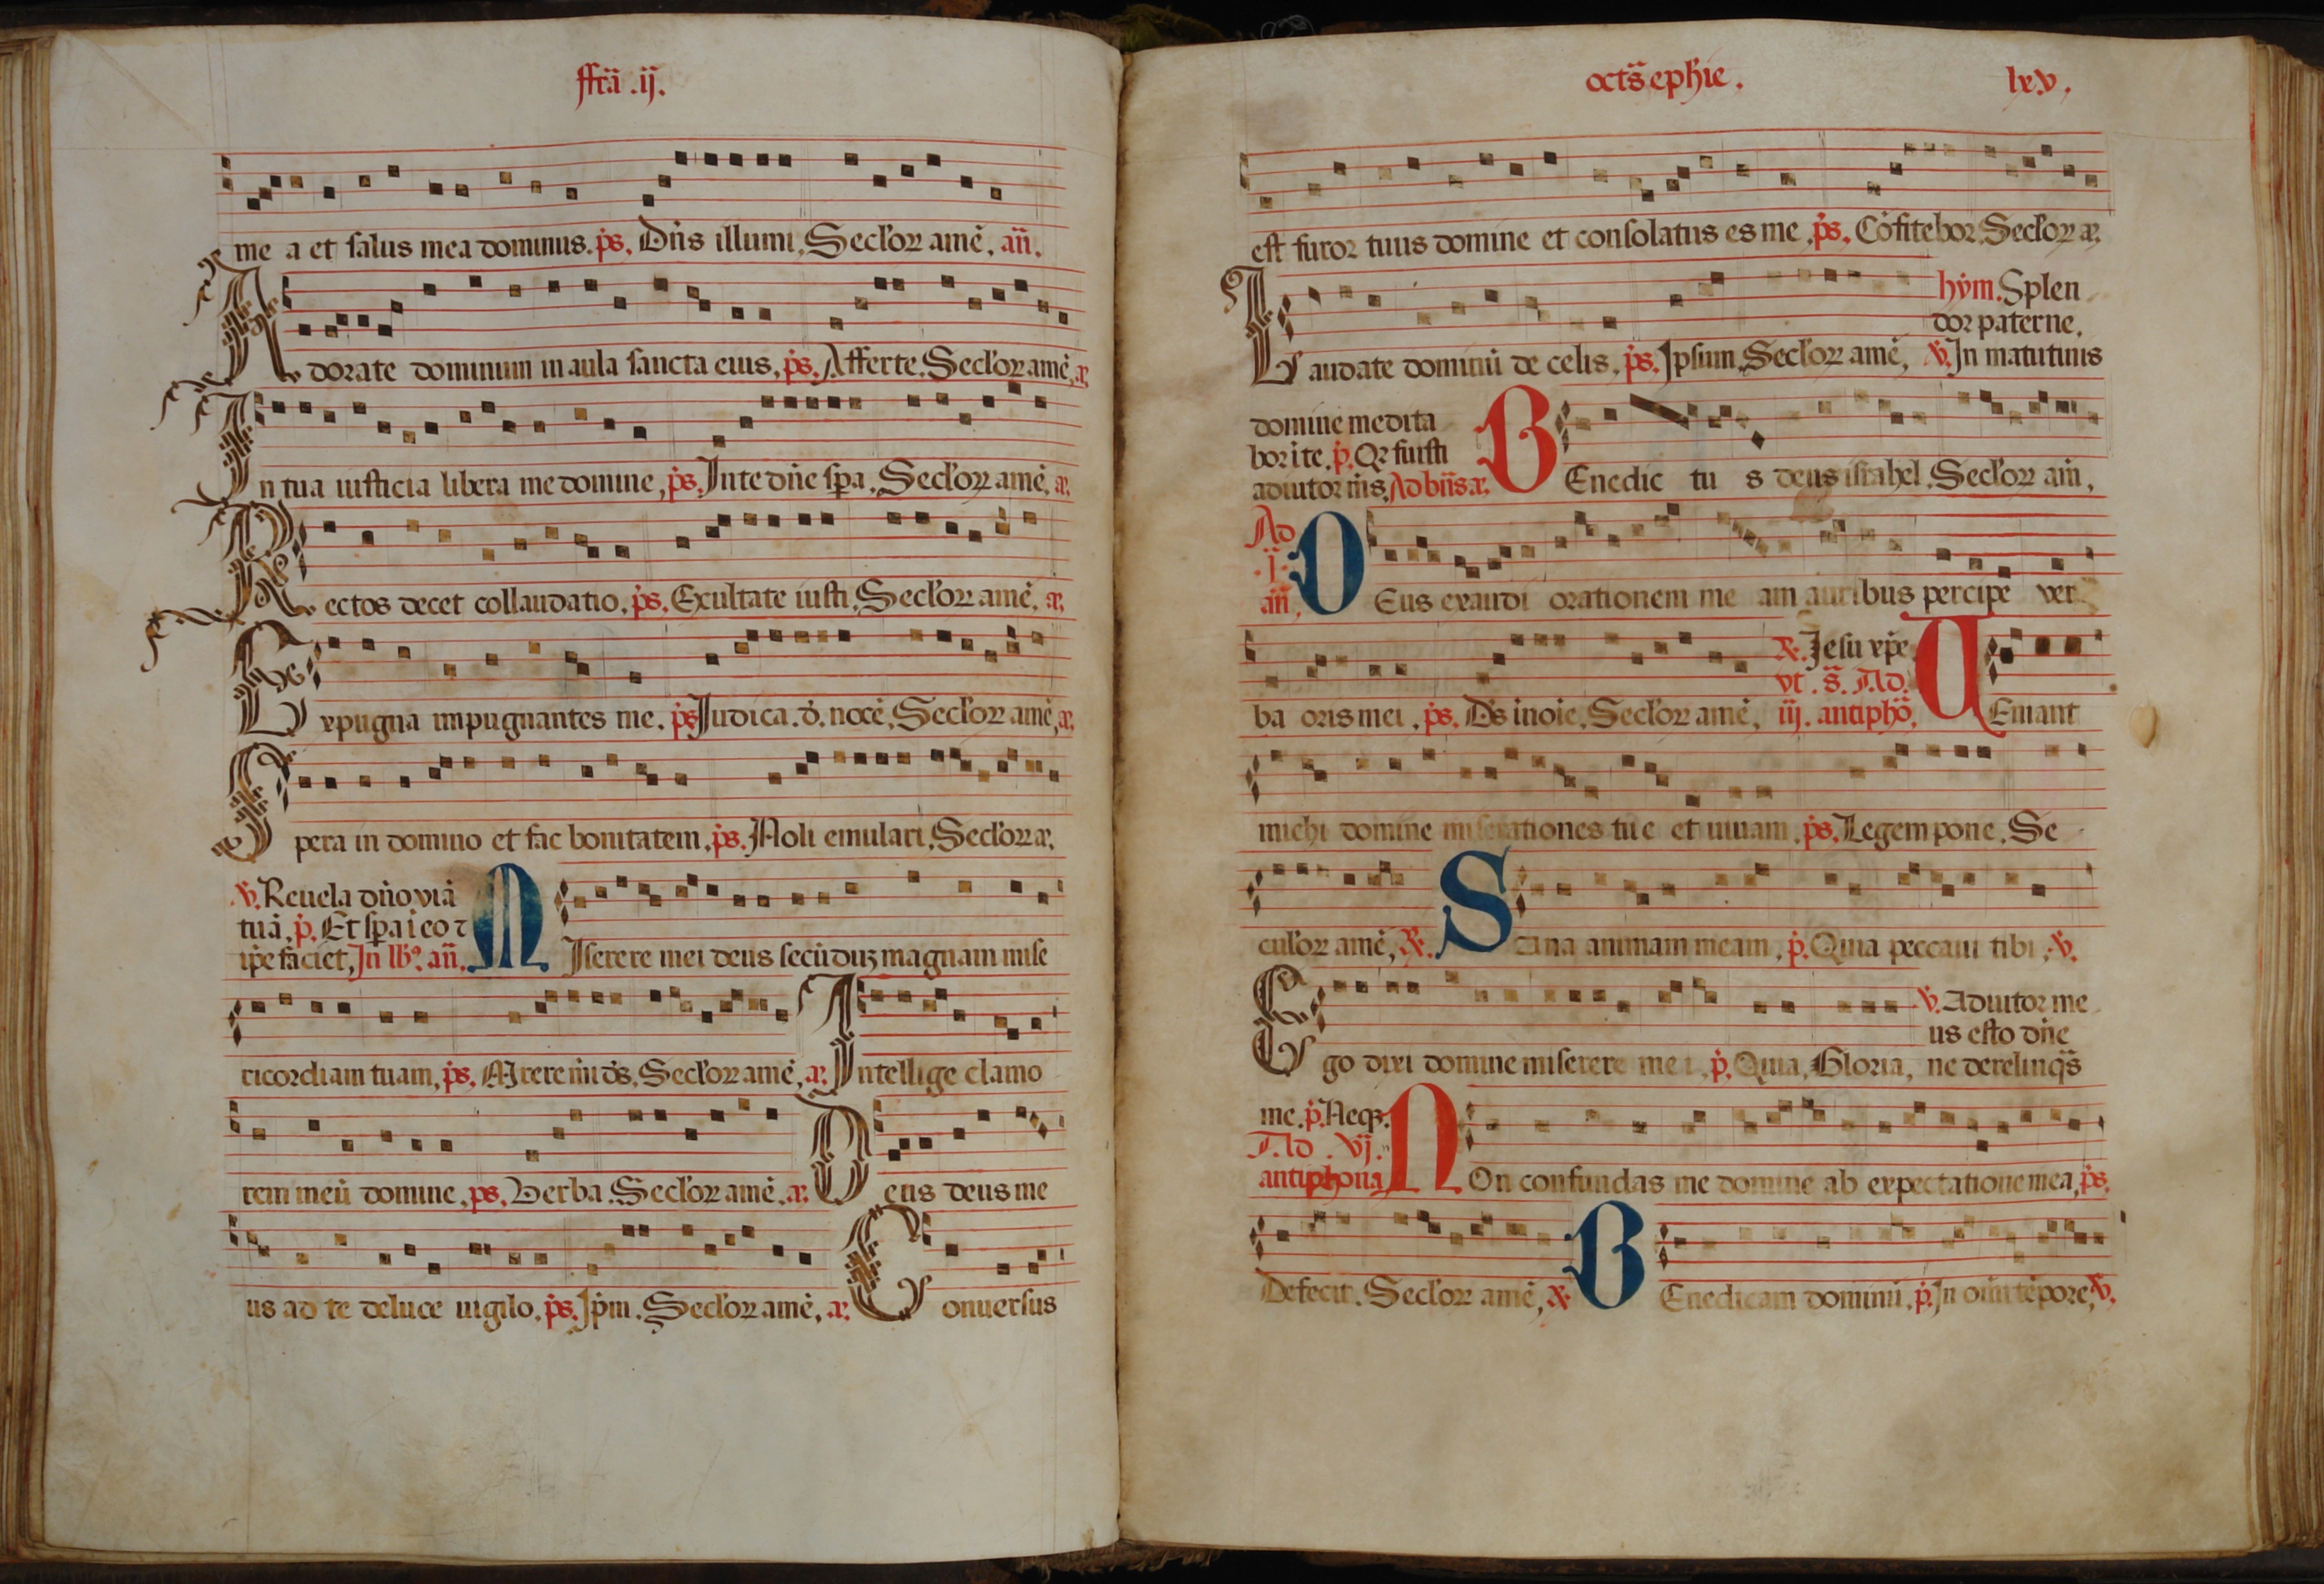 ffrã .ij.
me a et salus mea dominus. ps. Dñs illumi. Seclor amē. añ.
Adorate dominum in aula sancta eius. ps. Afferte. Seclor amē. a.
In tua iusticia libera me domine. ps. In te dñe spa. Seclor amē. a.
Rectos decet collaudatio. ps. Exultate iusti. Seclor amē. a.
Expugna impugnantes me. ps. Judica. d. nocē. Seclor amē. a.
Spera in domino et fac bonitatem. ps. Noli emulari. Seclor a.
v. Reuela dño viā
tuā. p. Et spa i eo ⁊
ipe faciet. In lb°. añ.
Miserere mei deus secūduz magnam mise
ricordiam tuam. ps. Mirere mi ds. Seclor amē. a. Intellige clamo
rem meū domine. ps. Verba. Seclor amē. a. Deus deus me
us ad te deluce uigilo. ps. Ipm. Seclor amē. a. Conuersus
octs ephie.
lxv.
est furor tuus domine et consolatus es me. ps. Cōfitebor. Seclor a.
hym. Splen
dor paterne.
Laudate dominū de celis. ps. Ipsum. Seclor amē. v. In matutinis
domine medita
bor i te. p. Qr fuisti
adiutor ms. Ad bñs a.
BEnedic tu s deus israhel. Seclor am.
Ad
.i.
añ.
DEus exaudi orationem me am auribus percipe ver
ba oris mei. ps. Ds i noie. Seclor amē.
R. Jesu xpe
vt. s. Ad.
iij. antiphō.
UEniant
michi domine miserationes tue et uiuam. ps. Legem pone. Se
culor amē. R. Sana animam meam. p. Quia peccaui tibi. v.
v. Adiutor me
us esto dñe
Ego dixi domine miserere mei. p. Quia. Gloria. ne derelinqs
me. p. Neq3.
Ad. vj.
antiphona
NOn confundas me domine ab expectatione mea. ps.
Defecit. Seclor amē. R. BEnedicam dominū. p. In oīm tēpore. v.